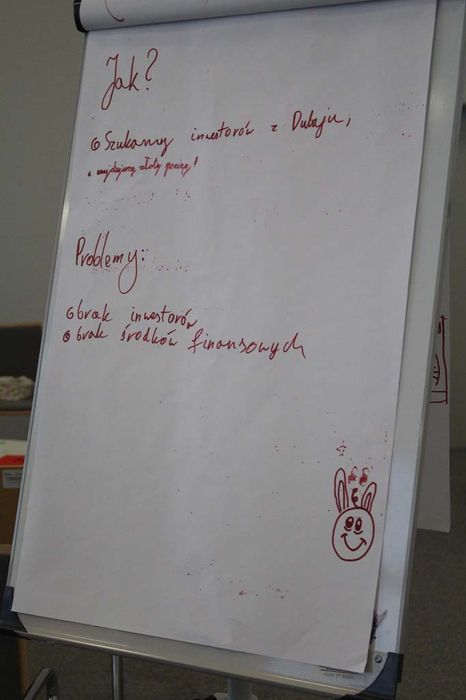 Jak?
Szukamy inwestorów z Dubaju,
a znajdujemy złoty pociąg!
Problemy:
brak inwestorów
brak środków finansowych